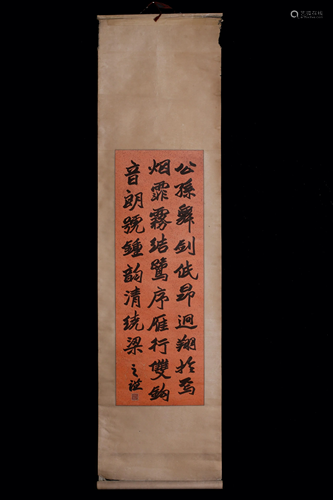 公孫舞劍低昂迥翔於焉
烟霏霧結鷺序雁行雙鈎
音朗號鍾韵清繞梁
之謙